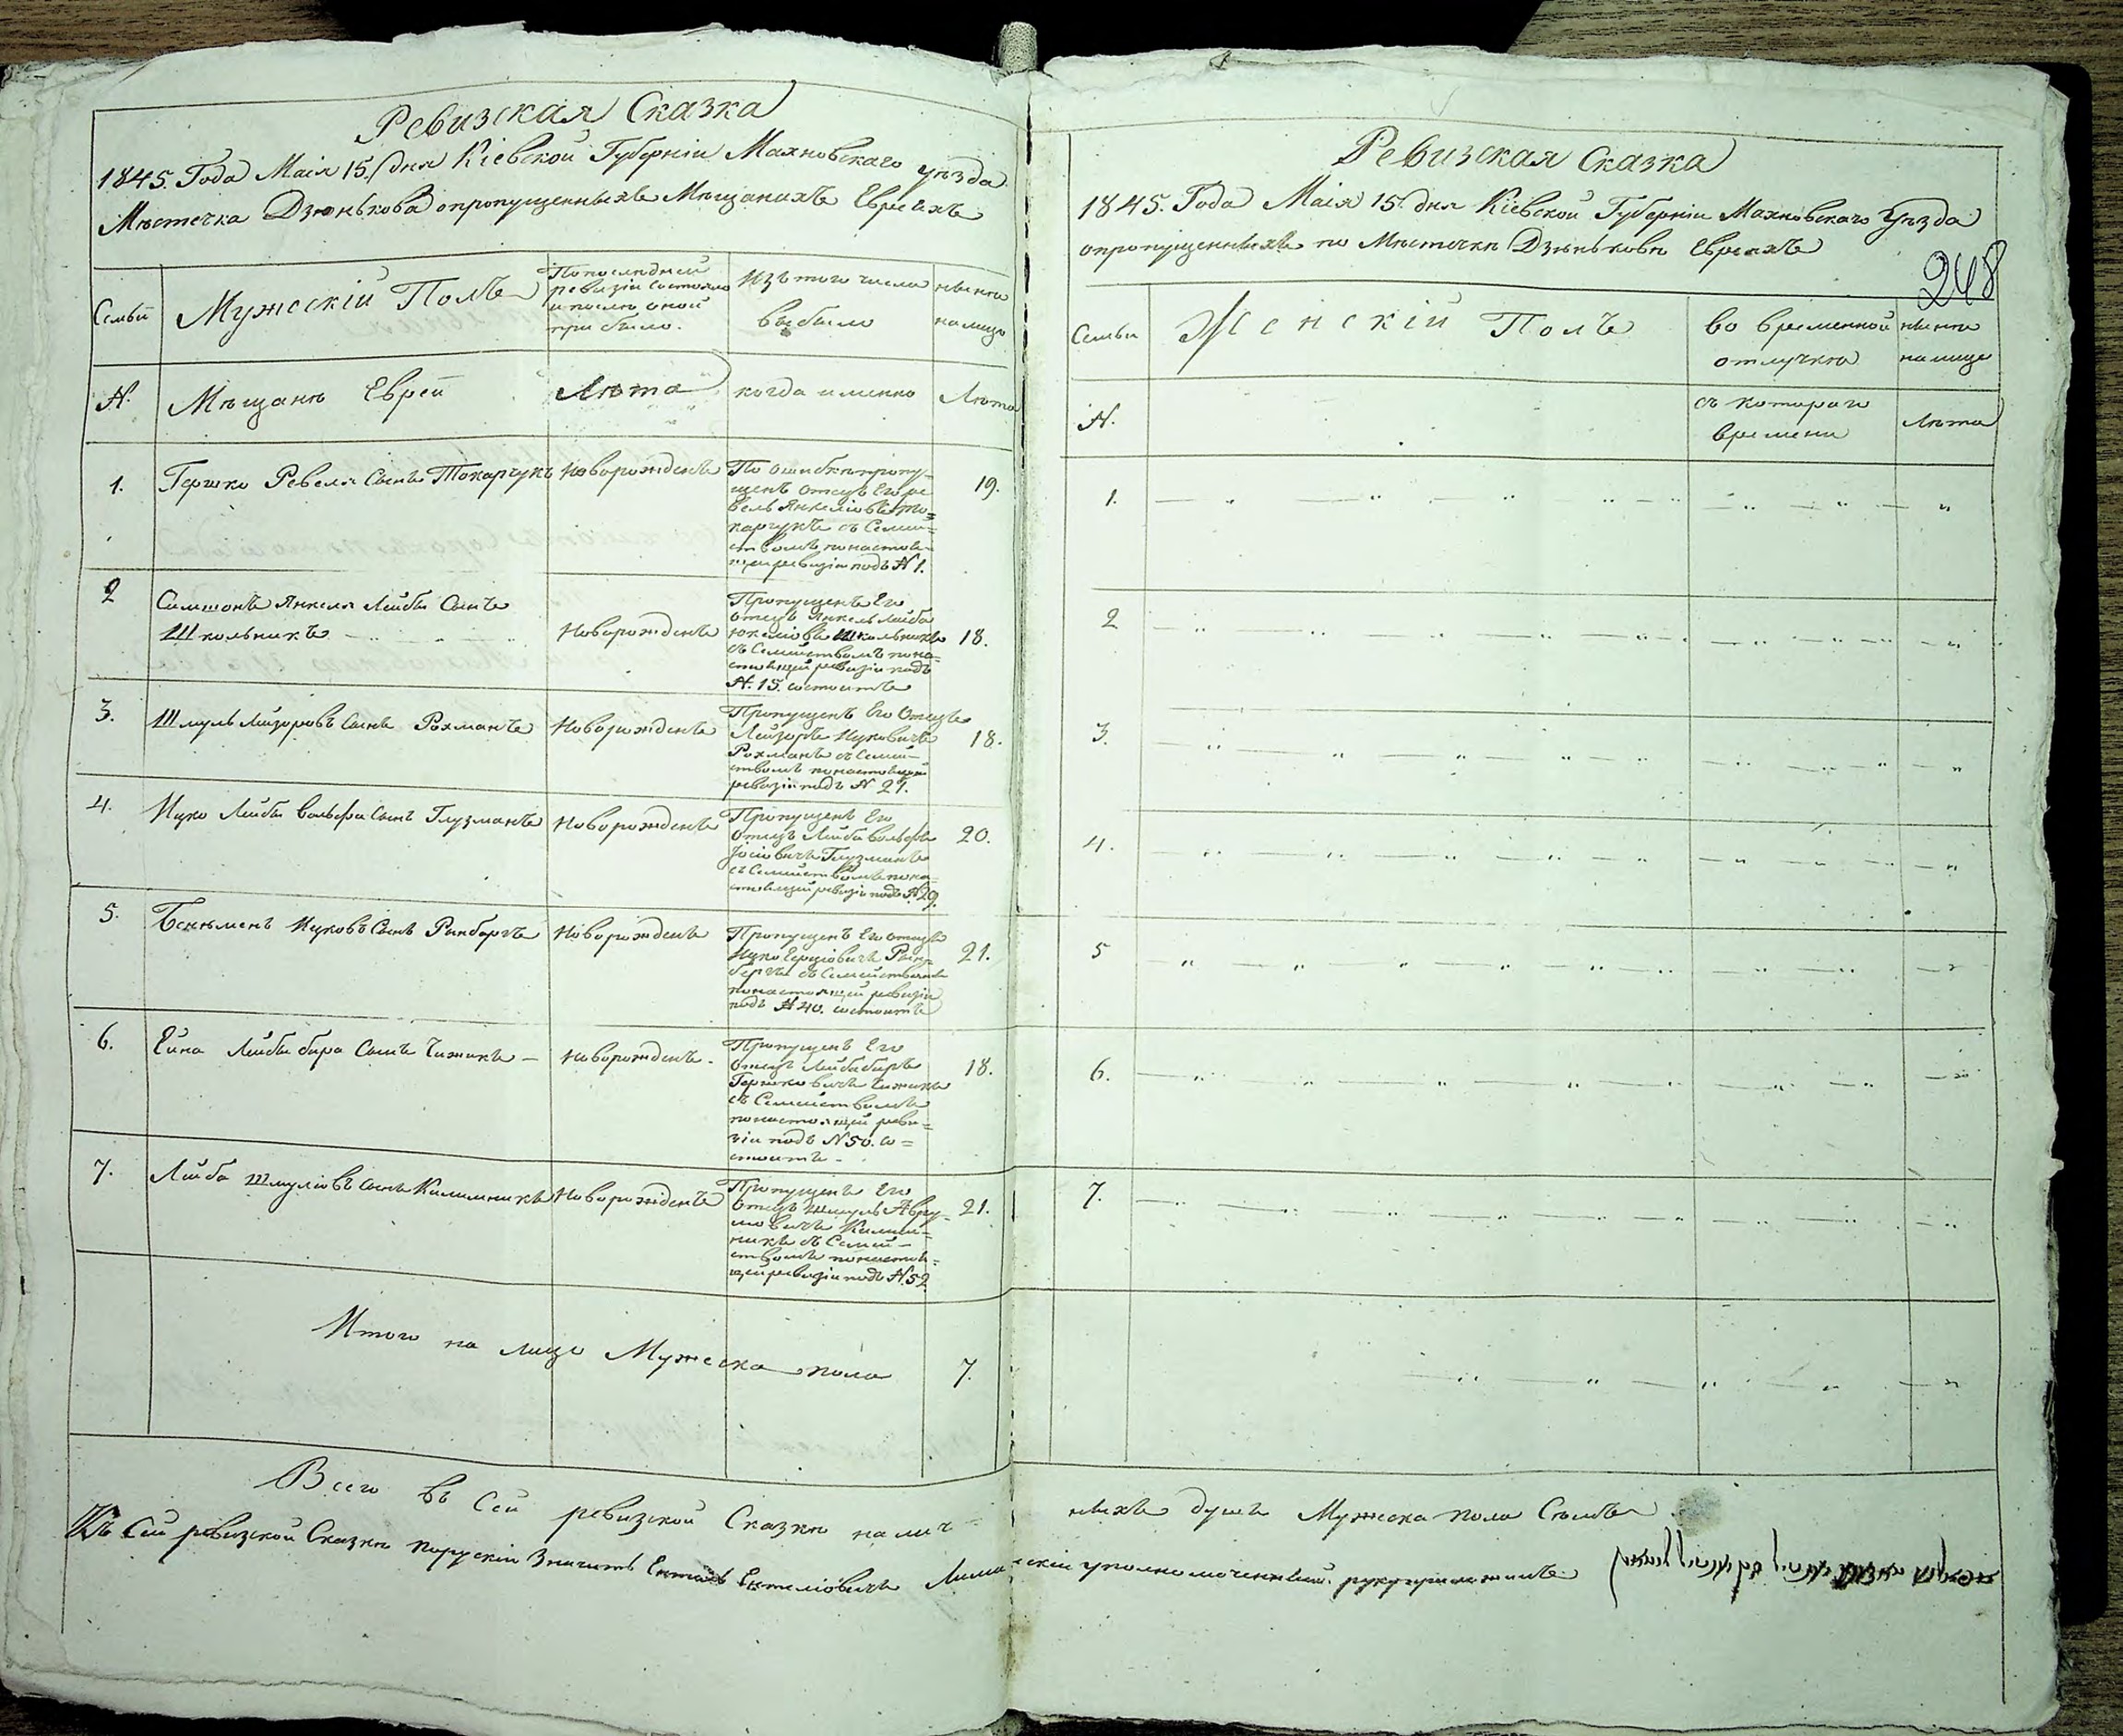 Ревизская Сказка
1845. Года Маія 15. дня Кіевской Губерніи Махновскаго уезда
Местечка Дзюнькова опропущенныхъ Мещанахъ Евреяхъ
Семьи
Мужескій Полъ
По последней
ревизіи состояло
и после оной
прибыло.
Изъ того числа
выбыло
ныне
на лицо
№.
Мещане Евреи
Лета
когда именно
Лета
1.
Гершко Ревеля Сынъ Токарчукъ
Новорожденъ
По ошибке пропу-
щенъ отецъ Его Ре
вель Янкеліовъ То=
карчукъ съ Семей=
ствомъ по настоя-
щей ревизіи подъ № 1.
19.
2
Симшонъ Янкеля Лейбы Сынъ
Школьникъ
Новорожденъ
Пропущенъ Его
отецъ Янкель Лейба
Школьникъ
съ Семействомъ по на=
стоящей ревизіи подъ
№. 15. состоитъ
18.
3.
Шмуль Лейзоровъ Сынъ Рохманъ
Новорожденъ
Пропущенъ Его Отецъ
Лейзоръ Ицковичъ
Рохманъ съ Семей-
ствомъ по настоящей
ревизіи подъ № 21.
18.
4.
Ицко Лейбы Вольфа Сынъ Глузманъ
Новорожденъ
Пропущенъ Его
Отецъ Лейба Вольфъ
Іосіовичъ Глузманъ
съ Семействомъ по на-
стоящей ревизіи подъ № 29.
20.
5.
Бенюменъ Ицковъ Сынъ Ринбергъ
Новорожденъ
Пропущенъ Его отецъ
Ицко Рин-
бергъ съ Семействомъ
по настоящей ревизіи
подъ № 40. состоитъ
21.
6.
Ейна Лейбы Бера Сынъ Чижикъ
Новорожденъ.
Пропущенъ Его
Отецъ Лейба Беръ
Гершковичъ Чижикъ
съ Семействомъ
по настоящей реви=
зіи подъ № 50. со=
стоитъ
18.
7.
Лейба Шмуліовъ Сынъ Калимникъ
Новорожденъ
Пропущенъ Его
Отецъ Шмуль Авру
мовичъ Калим-
никъ съ Семей-
ствомъ по настоя=
щей ревизіи подъ №. 52
21.
Итого на лицо Мужеска пола
7.
Всего въ Сей ревизской Сказке налич-
Къ Сей ревизской Сказке
Ревизская Сказка
1845. Года Маія 15. дня Кіевской Губерніи Махновскаго Уезда
опропущенныхъ по Местечку Дзюнькову Евреяхъ
248
Семьи
Женскій Полъ
во временной
отлучке
ныне
на лице
№.
съ котораго
времени
Лета
1.
2
3.
4.
5
6.
7.
ныхъ душъ Мужеска пола Семь
уполномоченный. руку приложилъ